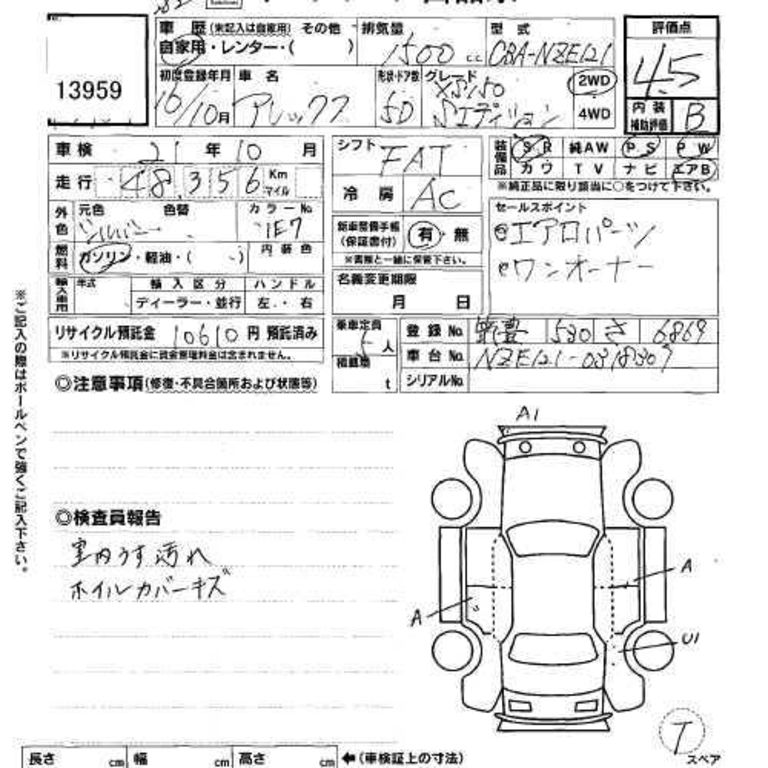 13959
車歴 (未記入は自家用) その他 排気量 型式
自家用・レンター・( ) 1500 cc CBA-NZE121
評価点
4.5
内装補助評価 B
初度登録年月 車名 形状・ドア数 グレード
16/10月 アレックス 5D XS150 Sエディション 2WD 4WD
車検 21年10月
走行 48,356 Km マイル
外色 元色 色替 カラーNo.
シルバー 1E7
燃料 ガソリン・軽油・( ) 内装色
輸入車用 年式 輸入区分 ハンドル
ディーラー・並行 左・右
リサイクル預託金 10610円 預託済み
※リサイクル預託金に資金管理料金は含まれません。
シフト FAT
冷房 AC
新車整備手帳(保証書付) 有・無
※書類と一緒に保管下さい。
名義変更期限
月 日
乗車定員 5人
積載量 t
装備品 SR 純AW PS PW
カワ TV ナビ エアB
※純正品に限り該当に○をつけて下さい。
セールスポイント
エアロパーツ
ワンオーナー
登録No. 530 さ 6869
車台No. NZE121-0318309
シリアルNo.
◎注意事項(修復・不具合箇所および状態等)
◎検査員報告
室内うす汚れ
ホイルカバーキズ
A1
A
A
U1
T
スペア
長さ cm 幅 cm 高さ cm ←(車検証上の寸法)
※ご記入の際はボールペンで強くご記入下さい。